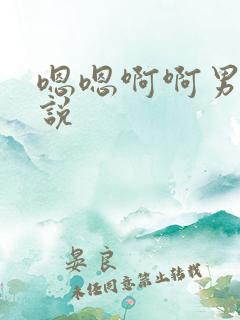 嗯嗯啊啊男
說
晏良
未经同意禁止转载